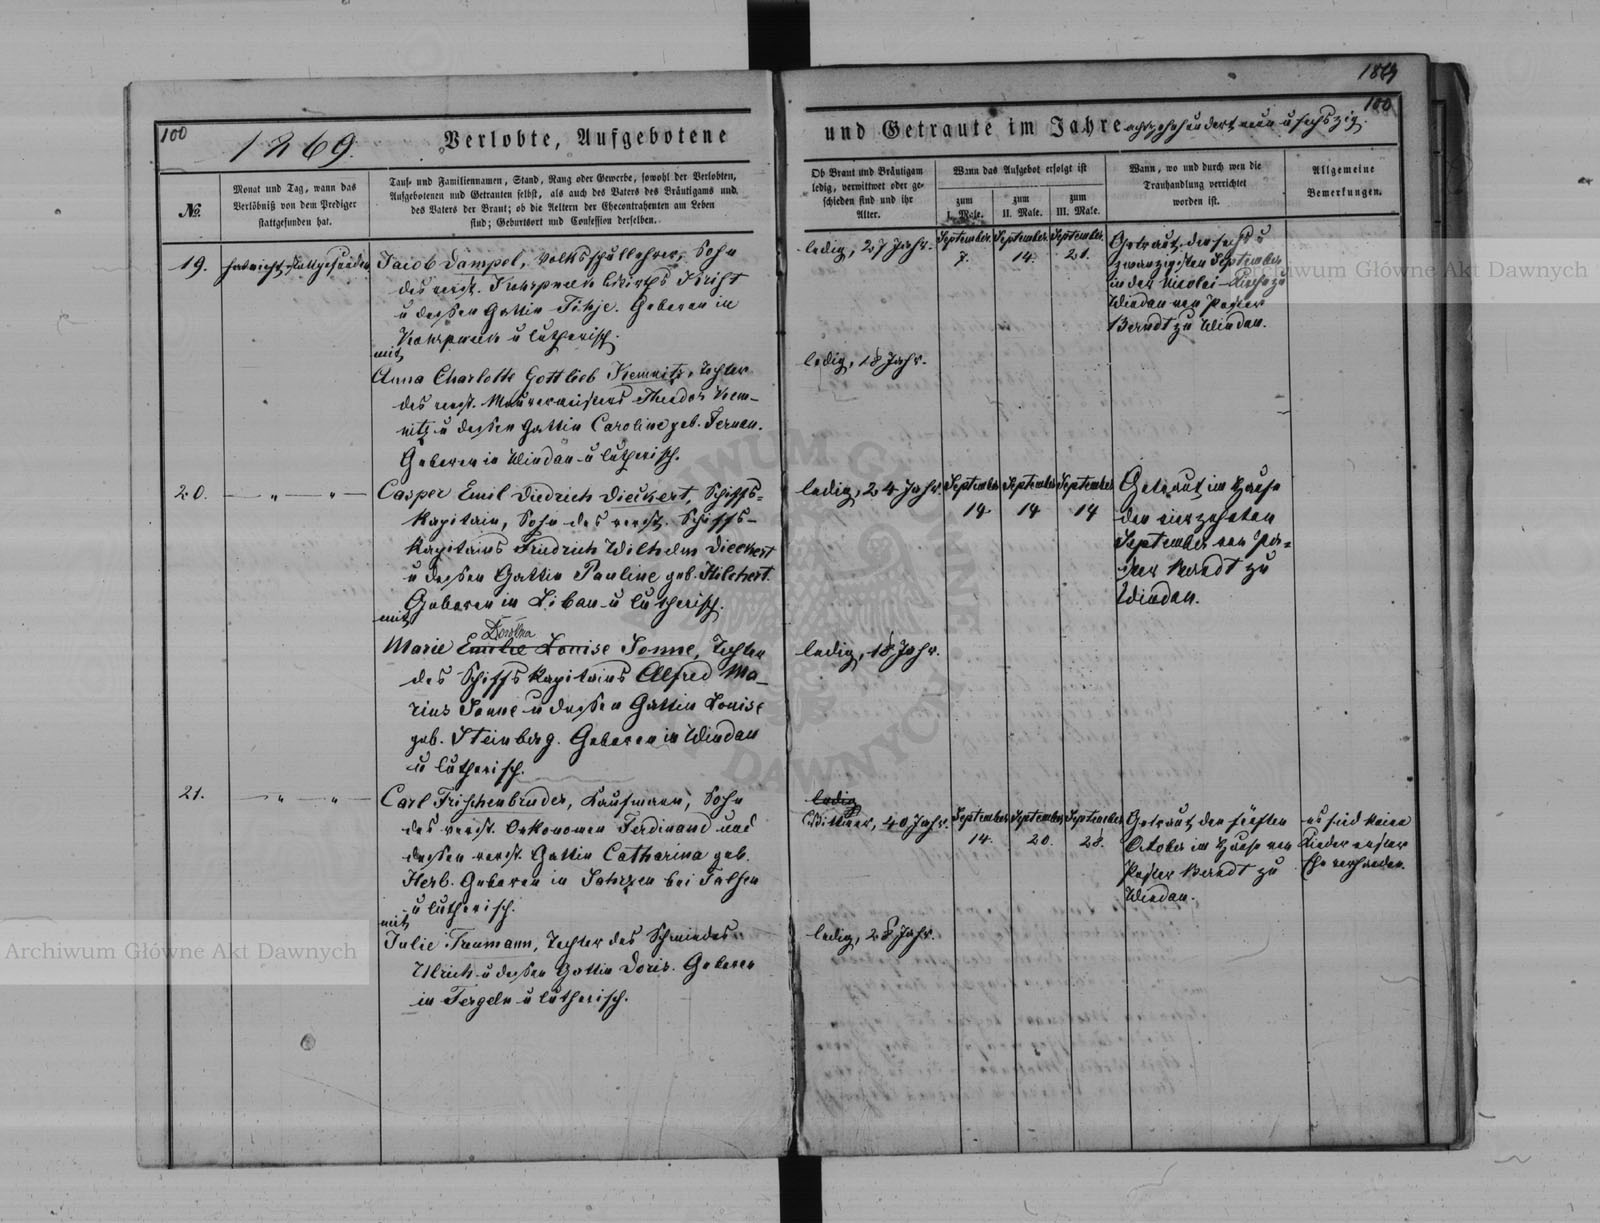 1869
100
100
1869.
Verlobte, Aufgebotene
und Getraute im Jahre achtzehnhundert neun u sechszig.
№.
Monat und Tag, wann das
Verlöbniß von dem Prediger
stattgefunden hat.
Tauf- und Familiennamen, Stand, Rang oder Gewerbe, sowohl der Verlobten,
Aufgebotenen und Getrauten selbst, als auch des Vaters des Bräutigams und
des Vaters der Braut; ob die Aeltern der Ehecontrahenten am Leben
sind; Geburtsort und Confession derselben.
Ob Braut und Bräutigam
ledig, verwittwet oder ge-
schieden sind und ihr
Alter.
Wann das Aufgebot erfolgt ist
zum
I. Male.
zum
II. Male.
zum
III. Male.
Wann, wo und durch wen die
Trauhandlung verrichtet
worden ist.
Allgemeine
Bemerkungen.
19.
hat nicht stattgefunden
Jacob Dampel, Volksschullehrer, Sohn
des verst. Wirths Krist
u dessen Gattin Tihje. Geboren in
u lutherisch.
mit
Anna Charlotte Gottlieb Kiemnitz, Tochter
des verst. Maurermeisters Theodor Kiem-
nitz u dessen Gattin Caroline geb. Fernau.
Geboren in Windau u lutherisch.
ledig, 27 Jahr.
ledig, 18 Jahr.
September
7.
September
14.
September
21.
Getraut den sechs u
zwanzigsten September
in der Nicolai-Kirche zu
Windau von Pastor
Berndt zu Windau.
20.
— " — " —
Casper Emil Diedrich Dieckert, Schiffs-
kapitain, Sohn des verst. Schiffs-
kapitains Friedrich Wilhelm Dieckert
u dessen Gattin Pauline geb. Hilchert.
Geboren in Libau u lutherisch.
mit
Dorothea
Marie Emilie Louise Sonne, Tochter
des Schiffskapitains Alfred Ma-
rius Sonne u dessen Gattin Louise
geb. Steinberg. Geboren in Windau
u lutherisch.
ledig, 24 Jahr
ledig, 18 Jahr.
September
14
September
14
September
14
Getraut im Hause
den vierzehnten
September von Pa-
stor Berndt zu
Windau.
21.
— " — " —
Carl Frischenbruder, Kaufmann, Sohn
des verst. Oekonomen Ferdinand und
dessen verst. Gattin Catharina geb.
Herb. Geboren in Sahrzen bei Talsen
u lutherisch.
mit
Julie Freumann, Tochter des Schmiedes
Ulrich u dessen Gattin Doris. Geboren
in Tergeln u lutherisch.
ledig
Wittwer, 40 Jahr.
ledig, 28 Jahr.
September
14.
September
20.
September
28.
Getraut den fünften
October im Hause von
Pastor Berndt zu
Windau.
es sind keine
Kinder erster
Ehe vorhanden.
Archiwum Główne Akt Dawnych
Archiwum Główne Akt Dawnych
ARCHIWUM GŁÓWNE AKT DAWNYCH